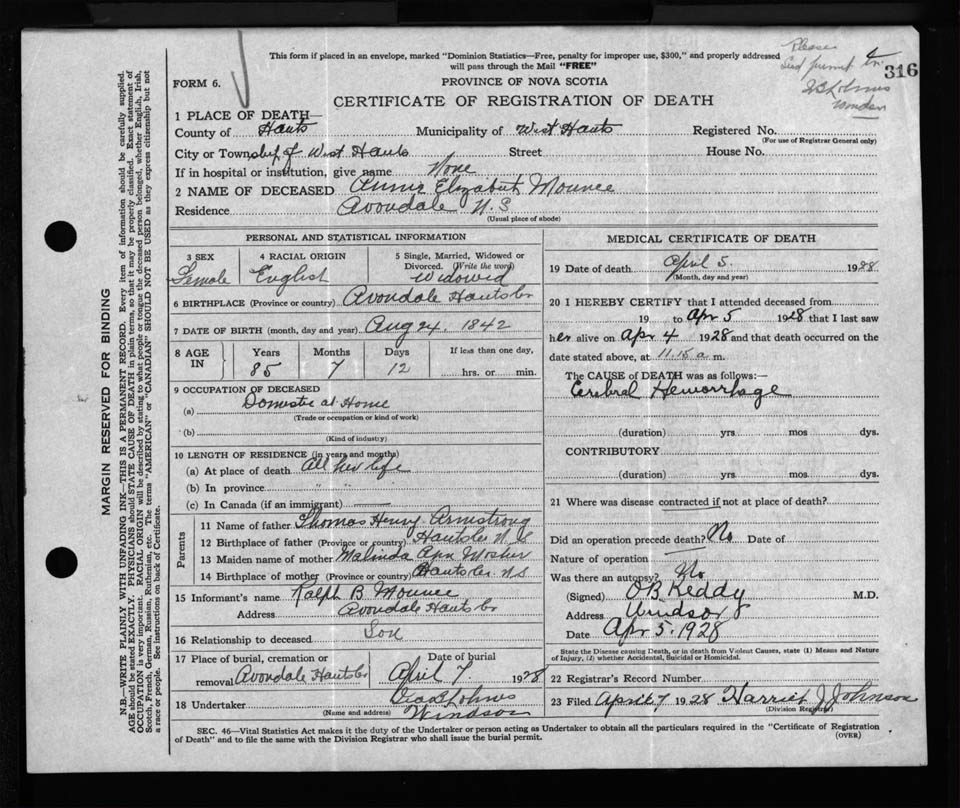 This form if placed in an envelope, marked "Dominion Statistics—Free, penalty for improper use, $300," and properly addressed
will pass through the Mail "FREE"
Please
Send permit to
316
Windsor
FORM 6.
PROVINCE OF NOVA SCOTIA
CERTIFICATE OF REGISTRATION OF DEATH
1 PLACE OF DEATH—
County of Hants Municipality of West Hants Registered No.
(For use of Registrar General only)
City or Township of West Hants Street House No.
If in hospital or institution, give name None
2 NAME OF DECEASED Annie Elizabeth Mounce
Residence Avondale N.S
(Usual place of abode)
PERSONAL AND STATISTICAL INFORMATION
3 SEX 4 RACIAL ORIGIN 5 Single, Married, Widowed or
Divorced. (Write the word)
Female English Widowed
6 BIRTHPLACE (Province or country) Avondale Hants Co
7 DATE OF BIRTH (month, day and year) Aug 24. 1842
8 AGE IN Years Months Days If less than one day,
85 7 12 hrs. or min.
9 OCCUPATION OF DECEASED
(a) Domestic at Home
(Trade or occupation or kind of work)
(b)
(Kind of industry)
10 LENGTH OF RESIDENCE (in years and months)
(a) At place of death All her life
(b) In province " "
(c) In Canada (if an immigrant)
Parents
11 Name of father Thomas Henry Armstrong
12 Birthplace of father (Province or country) Hants Co N.S
13 Maiden name of mother Malinda Ann Mosher
14 Birthplace of mother (Province or country) Hants Co. N.S
15 Informant's name Ralph B Mounce
Address Avondale Hants Co
16 Relationship to deceased Son
17 Place of burial, cremation or Date of burial
removal Avondale Hants Co April 7. 1928
18 Undertaker
(Name and address) Windsor
MEDICAL CERTIFICATE OF DEATH
19 Date of death April 5. 1928
(Month, day and year)
20 I HEREBY CERTIFY that I attended deceased from
19 to Apr 5 1928 that I last saw
her alive on Apr 4 1928 and that death occurred on the
date stated above, at 11.15 a. m.
The CAUSE of DEATH was as follows:—
Cerebral Hemorrhage
(duration) yrs mos dys.
CONTRIBUTORY
(duration) yrs. mos. dys.
21 Where was disease contracted if not at place of death?
Did an operation precede death? No Date of
Nature of operation
Was there an autopsy? No
(Signed) O B Keddy M.D.
Address Windsor
Date Apr 5. 1928
State the Disease causing Death, or in death from Violent Causes, state (1) Means and Nature
of Injury, (2) whether Accidental, Suicidal or Homicidal.
22 Registrar's Record Number
23 Filed April 7 1928 Harriet J Johnson
(Division Registrar)
SEC. 46—Vital Statistics Act makes it the duty of the Undertaker or person acting as Undertaker to obtain all the particulars required in the "Certificate of Registration
of Death" and to file the same with the Division Registrar who shall issue the burial permit. (OVER)
MARGIN RESERVED FOR BINDING
N.B.—WRITE PLAINLY WITH UNFADING INK—THIS IS A PERMANENT RECORD. Every item of information should be carefully supplied.
AGE should be stated EXACTLY. PHYSICIANS should STATE CAUSE OF DEATH in plain terms, so that it may be properly classified. Exact statement of
OCCUPATION is very important. RACIAL ORIGIN will be described by stating to what people or tongue the deceased person belonged, whether English, Irish,
Scotch, French, German, Russian, Ruthenian, etc. The terms "AMERICAN" or "CANADIAN" SHOULD NOT BE USED as they express citizenship but not
a race or people. See instructions on back of Certificate.